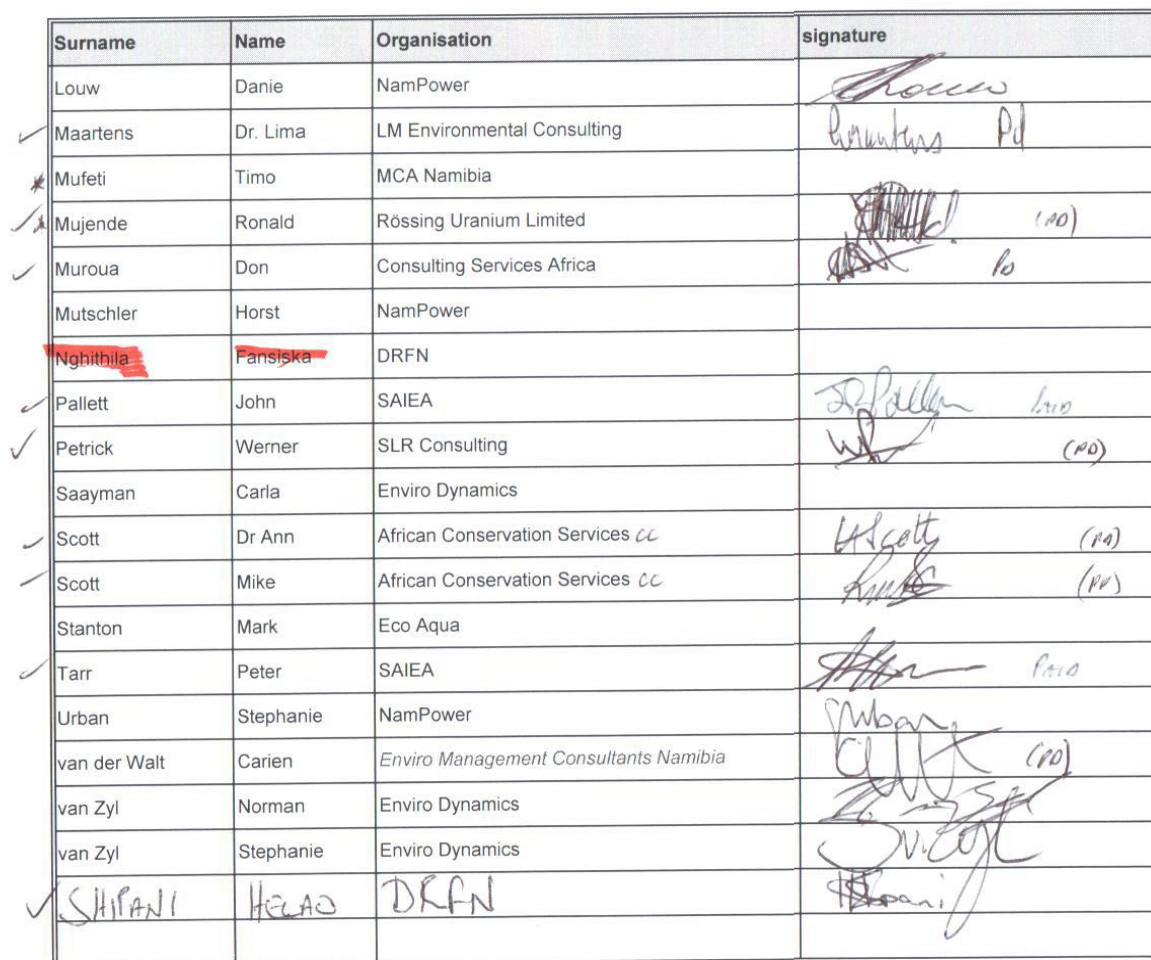 Surname Name Organisation signature
Louw Danie NamPower
Maartens Dr. Lima LM Environmental Consulting Pd
Mufeti Timo MCA Namibia
Mujende Ronald Rössing Uranium Limited (PD)
Muroua Don Consulting Services Africa PD
Mutschler Horst NamPower
Nghithila Fansiska DRFN
Pallett John SAIEA PAID
Petrick Werner SLR Consulting (PD)
Saayman Carla Enviro Dynamics
Scott Dr Ann African Conservation Services CC (PD)
Scott Mike African Conservation Services CC
Stanton Mark Eco Aqua
Tarr Peter SAIEA PAID
Urban Stephanie NamPower
van der Walt Carien Enviro Management Consultants Namibia (PD)
van Zyl Norman Enviro Dynamics
van Zyl Stephanie Enviro Dynamics
SHIPANI HELAO DRFN